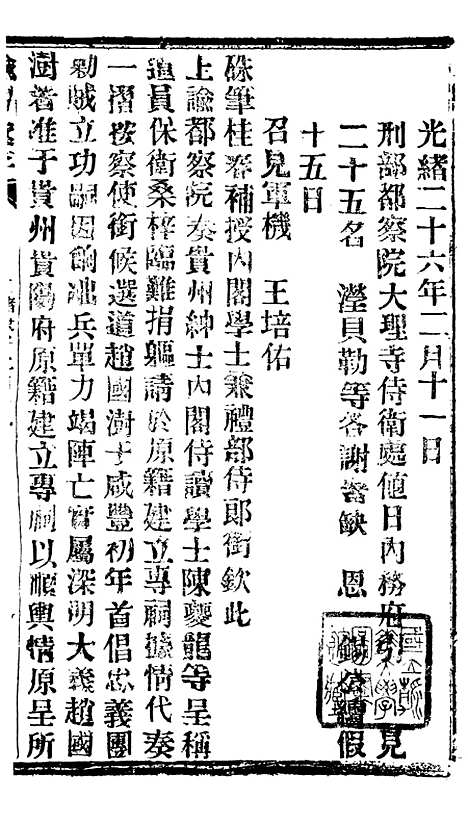 光緒二十六年二月十一日
刑部都察院大理寺侍衛處值日內務府引 見
二十五名 瀅貝勒等各謝署缺 恩 錫公續假
十五日
召見軍機 王培佑
硃筆桂春補授內閣學士兼禮部侍郎銜欽此
上諭都察院奏貴州紳士內閣侍讀學士陳夔龍等呈稱
道員保衛桑梓臨難捐軀請於原籍建立專祠據情代奏
一摺按察使銜候選道趙國澍于咸豐初年首倡忠義團
勦賊立功嗣因餉絀兵單力竭陣亡實屬深明大義趙國
澍著准于貴州貴陽府原籍建立專祠以順輿情原呈所